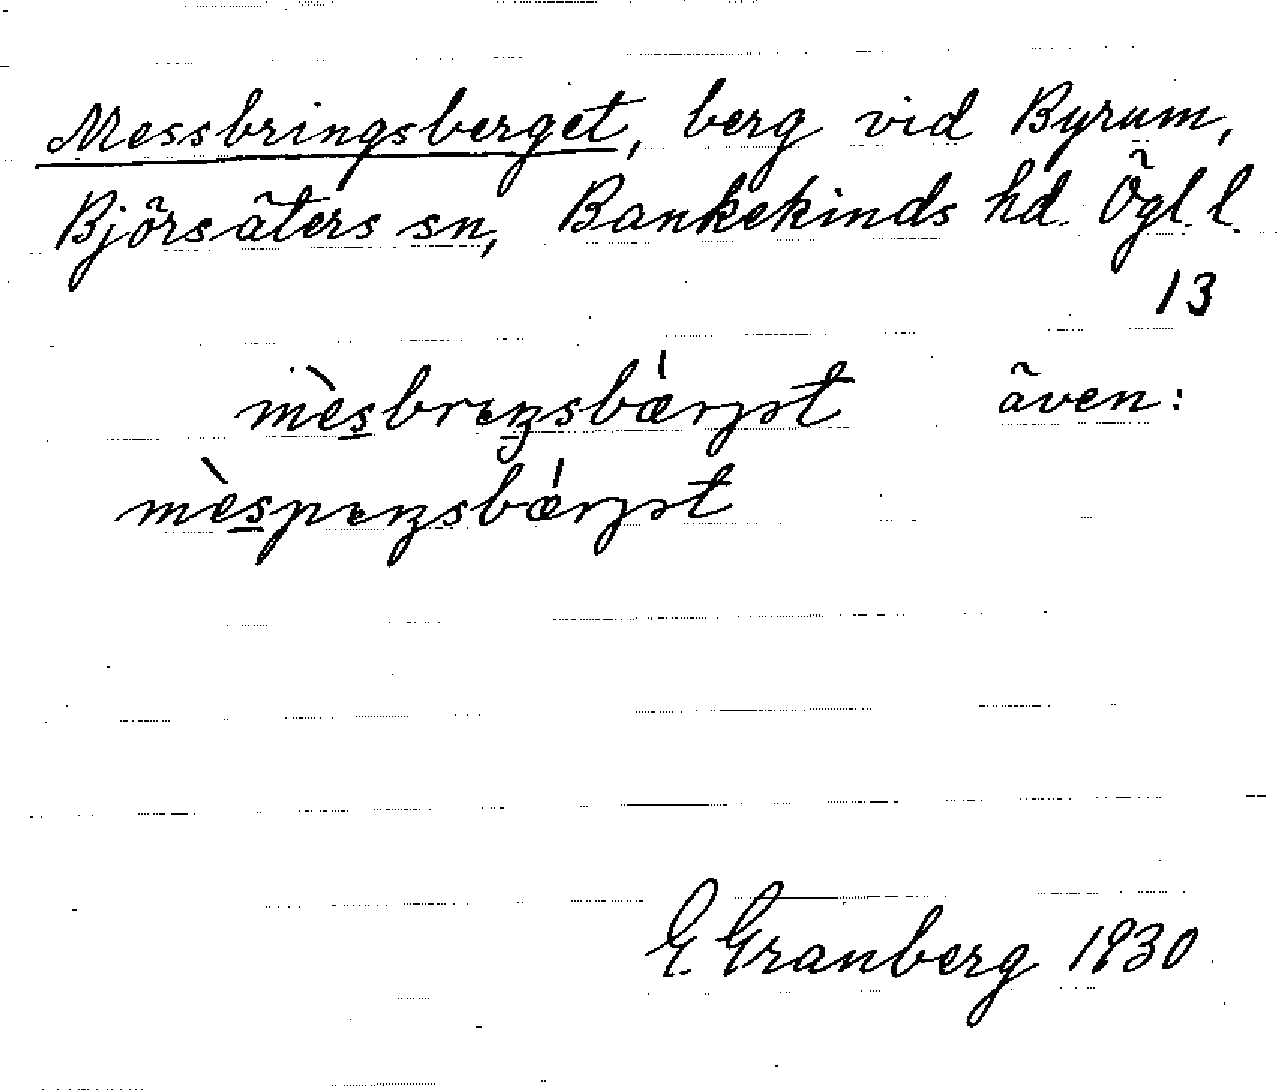 Messbringsberget, berg vid Byrum,
Björsäters sn, Bankekinds hd. Ögl. l.
13
även:
G. Granberg 1930